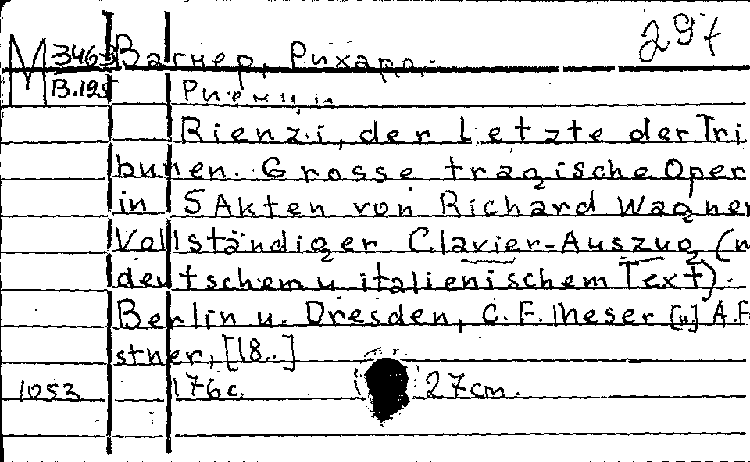 297
M 3463 Вагнер, Рихард.
В.195 Риенци
Rienzi, der Letzte der Tri
bunen. Grosse tragische Oper
in 5 Akten von Richard Wagner
Vollständiger Clavier-Auszug (m
deutschem u italienischem Text).
Berlin u. Dresden, C.F. Meser [u] A.F
stner, [18..]
1053 176 c. 27cm.